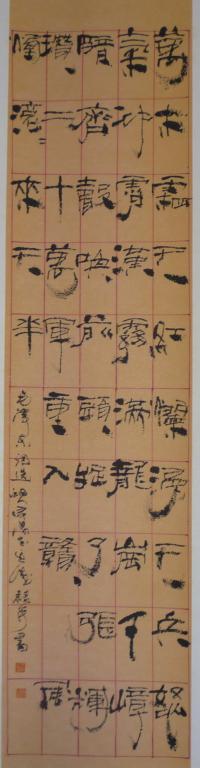 萬木霜天紅爛漫天兵怒
氣冲霄漢霧滿龍岡千嶂
暗齊聲喚前頭捉了張輝
瓚二十萬軍重入贛風
煙滾滾來天半
毛澤東詞選